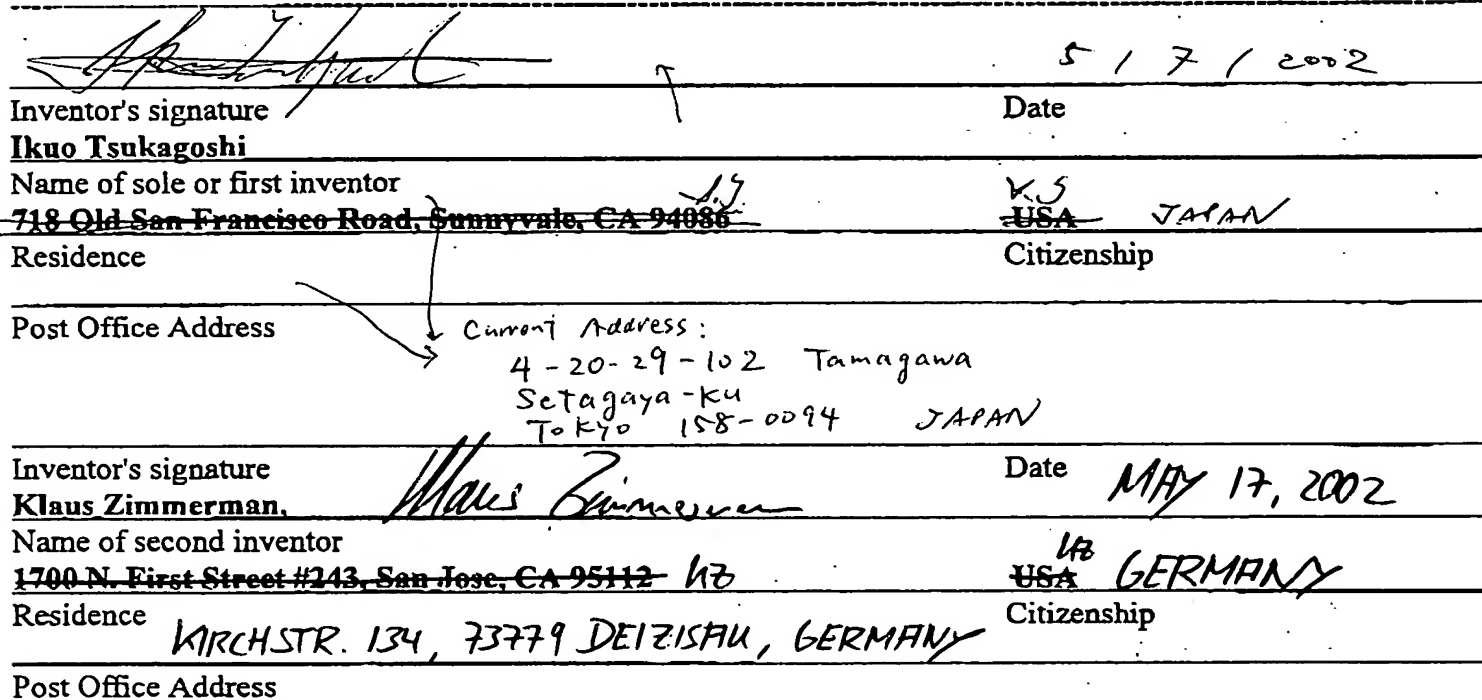 5 / 7 / 2002
Inventor's signature Date
Ikuo Tsukagoshi
Name of sole or first inventor
718 Old San Francisco Road, Sunnyvale, CA 94086 USA JAPAN
Residence Citizenship
Post Office Address Current Address:
4-20-29-102 Tamagawa
Setagaya-Ku
Tokyo 158-0094 JAPAN
Inventor's signature Date MAY 17, 2002
Klaus Zimmerman, Klaus Zimmerman
Name of second inventor KZ
1700 N. First Street #243, San Jose, CA 95112 KZ USA GERMANY
Residence KIRCHSTR. 134, 73779 DEIZISAU, GERMANY Citizenship
Post Office Address